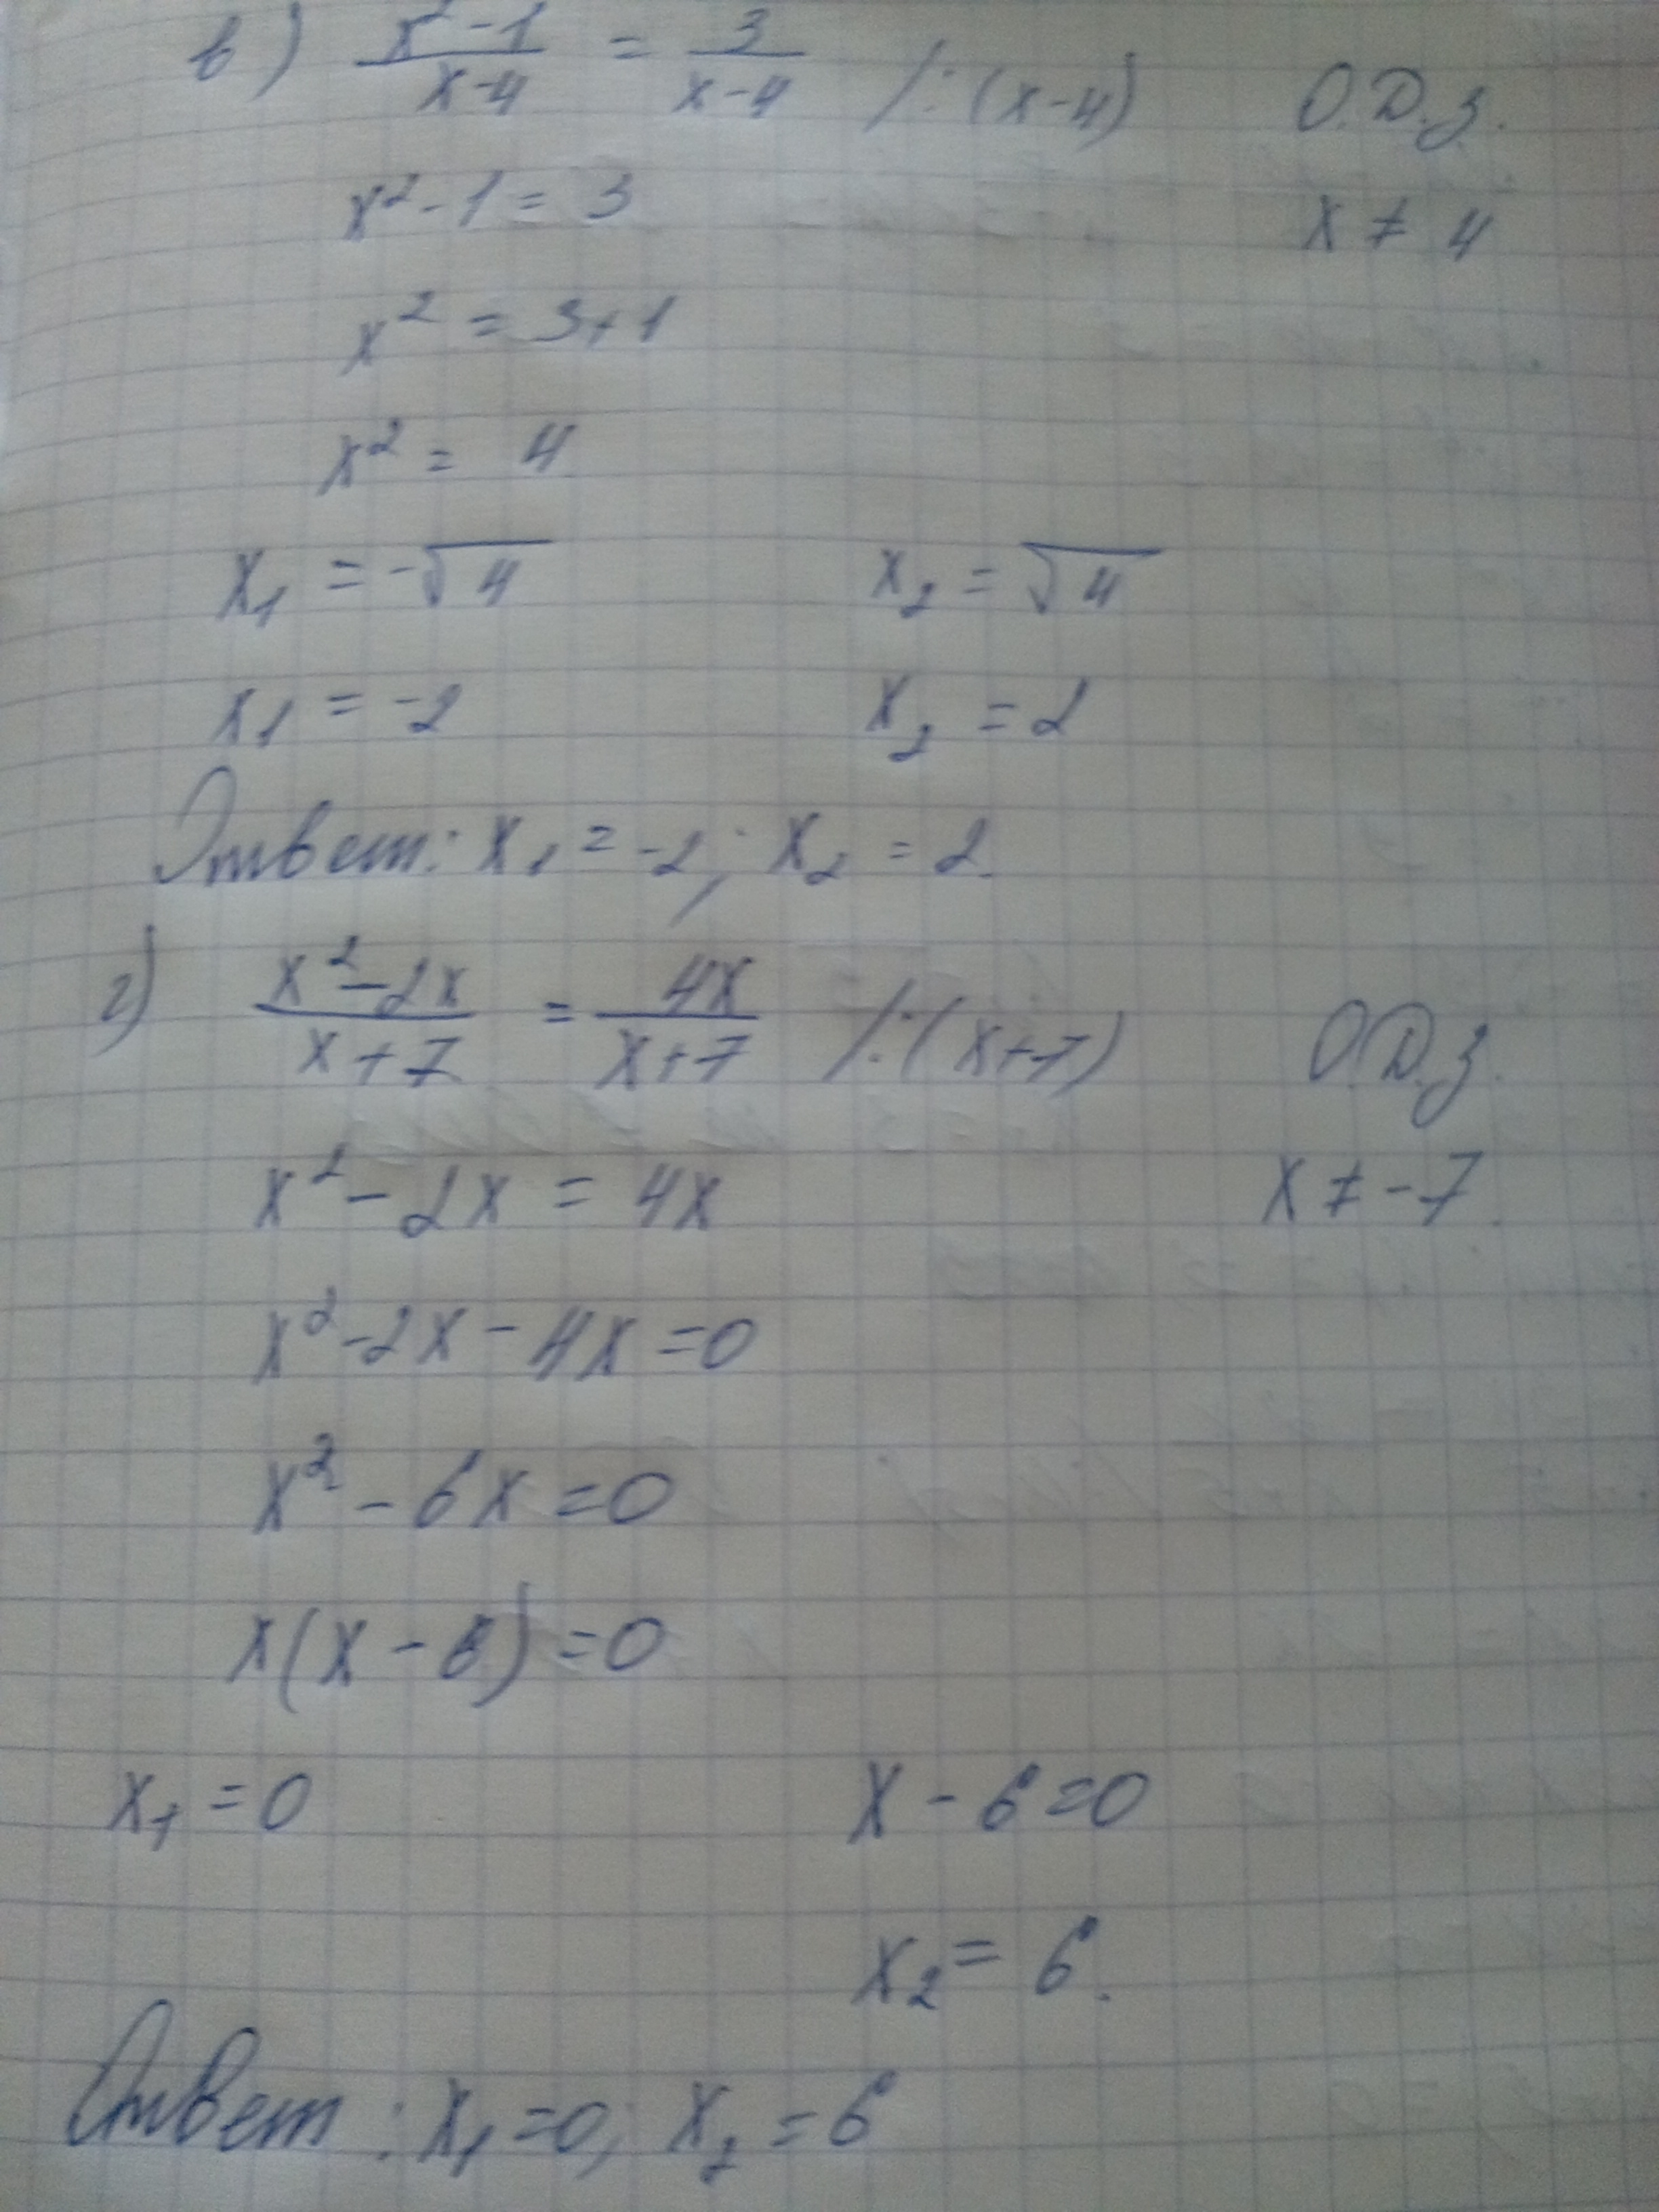 в) (x²-1)/(x-4) = 3/(x-4) /:(x-4) О.Д.З.
x²-1=3 x ≠ 4
x² = 3+1
x² = 4
x₁ = -√4 x₂ = √4
x₁ = -2 x₂ = 2
Ответ: x₁ = -2; x₂ = 2.
г) (x²-2x)/(x+7) = 4x/(x+7) /:(x+7) О.Д.З.
x² - 2x = 4x x ≠ -7.
x² - 2x - 4x = 0
x² - 6x = 0
x(x - 6) = 0
x₁ = 0 x - 6 = 0
x₂ = 6.
Ответ: x₁ = 0; x₂ = 6